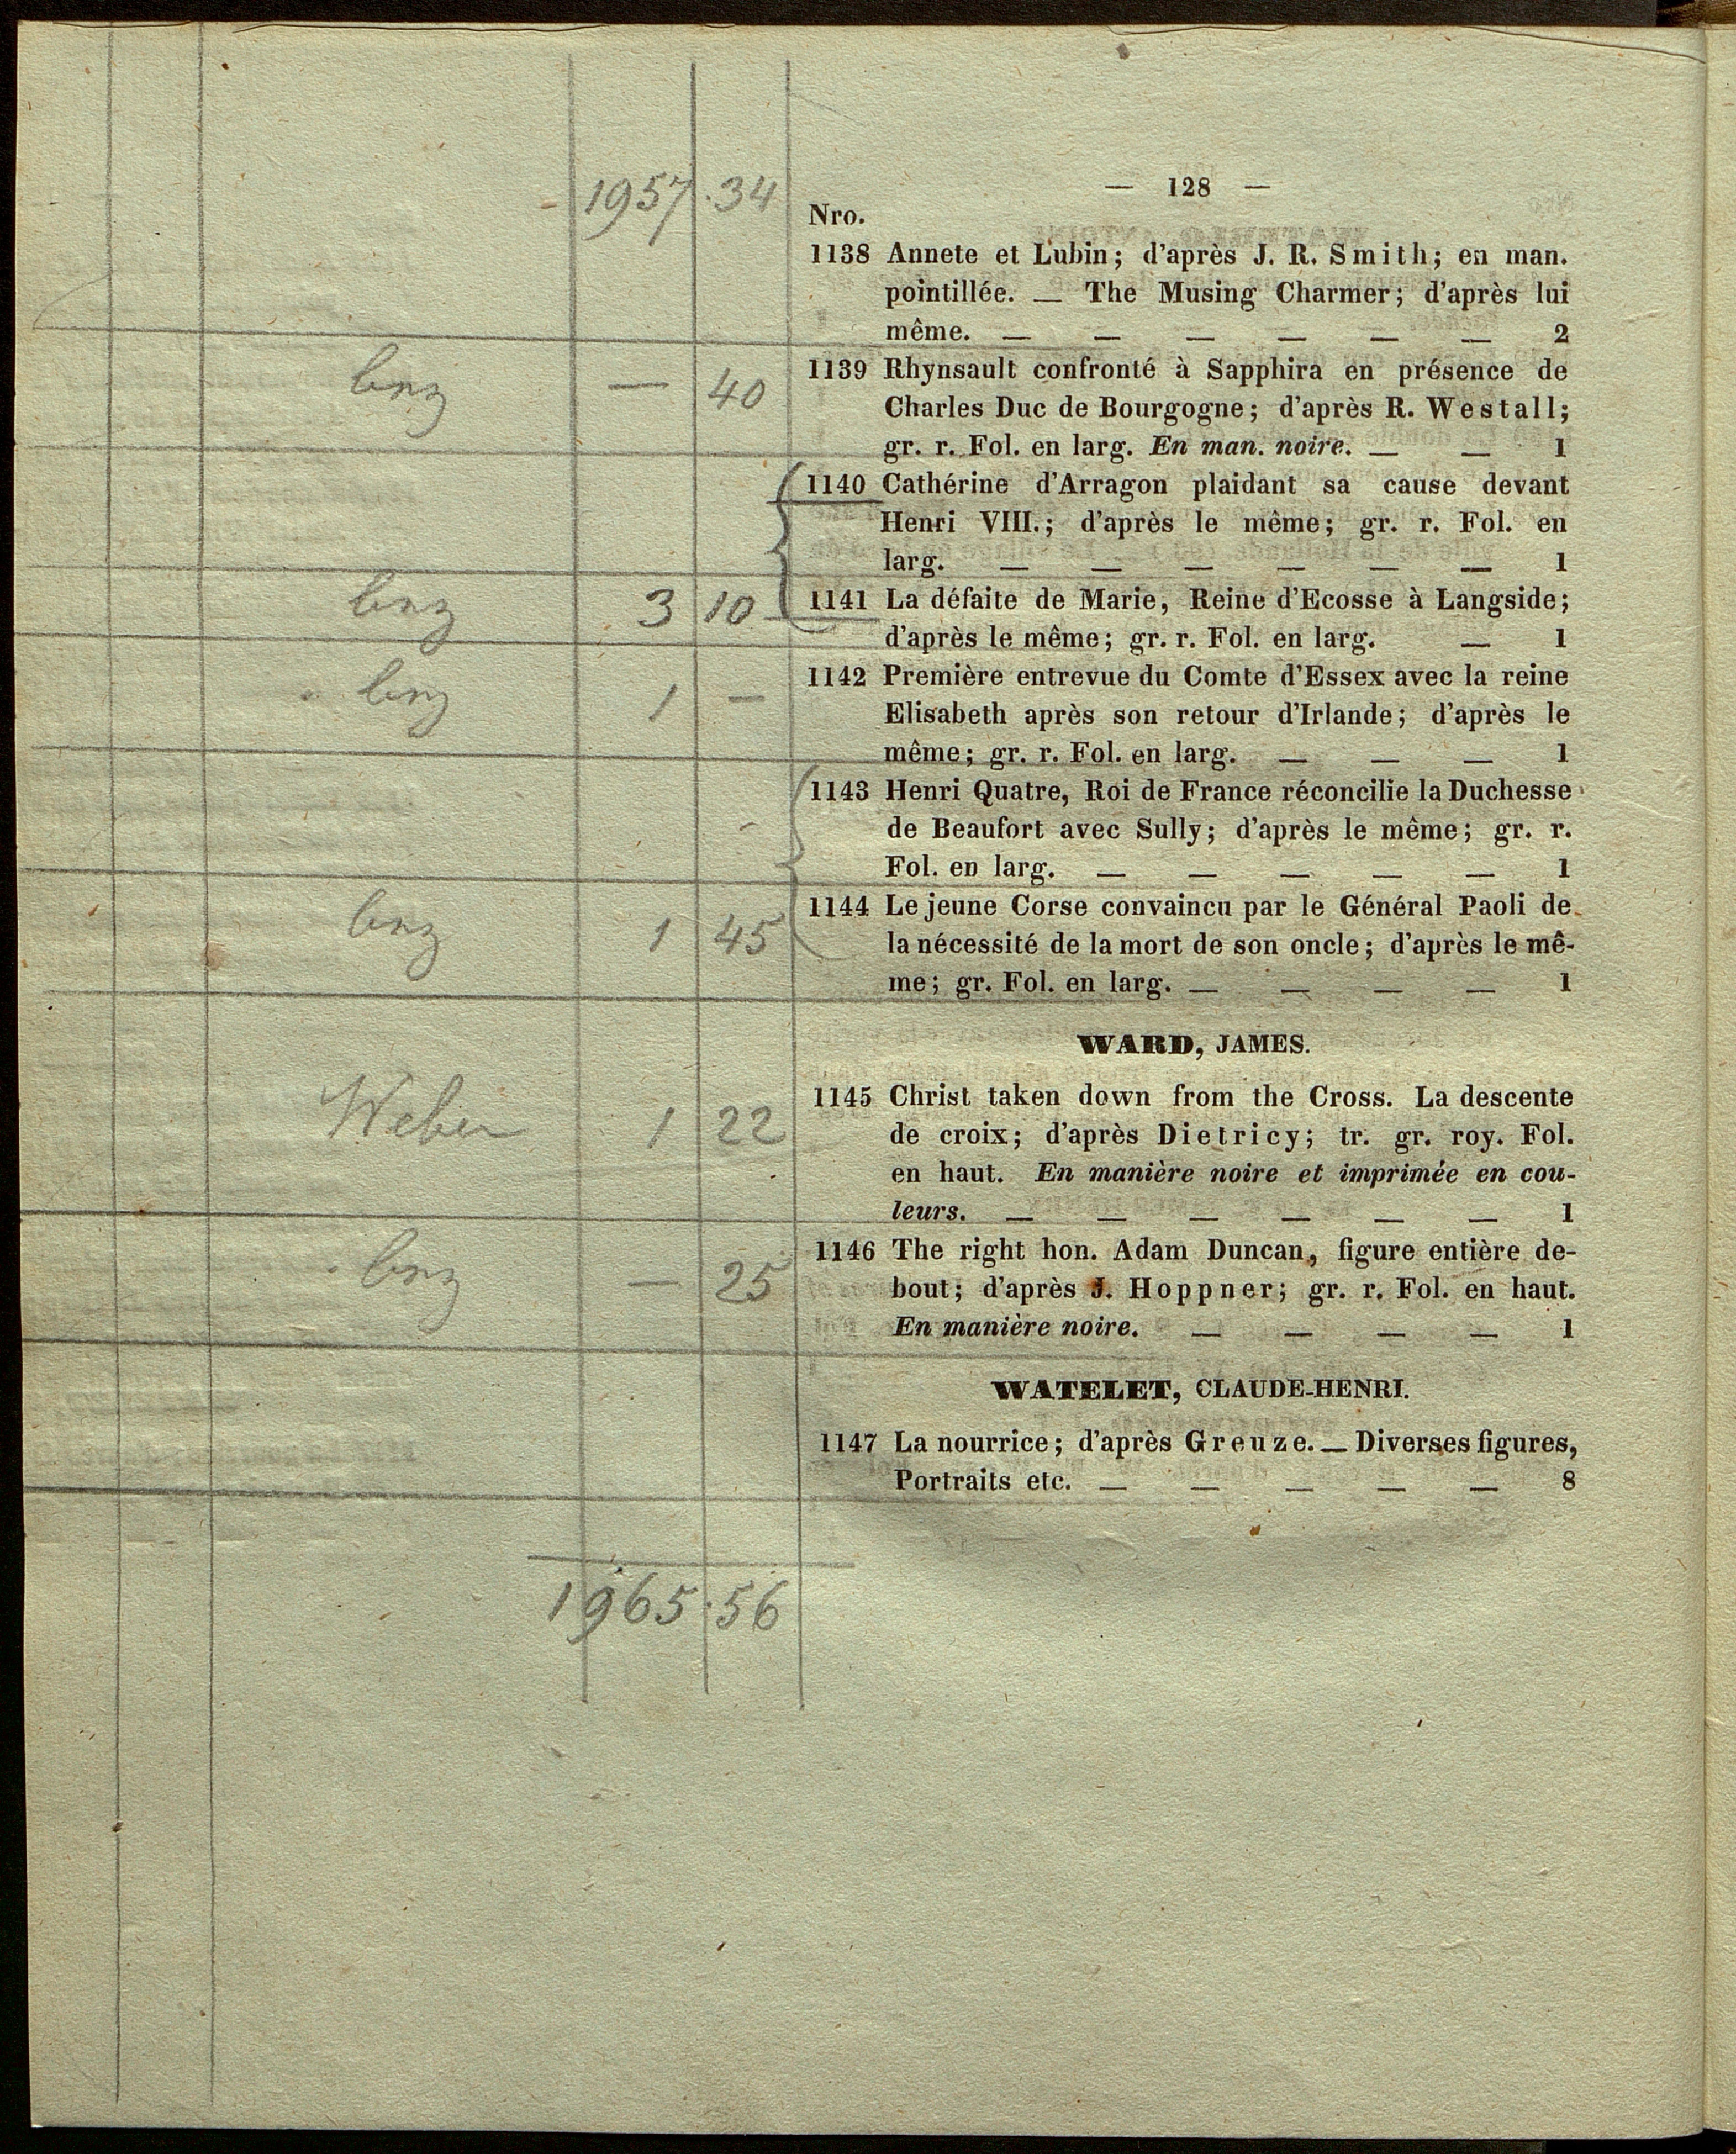 1957 . 34
— 128 —
Nro.
1138 Annete et Lubin; d'après J. R. Smith; en man.
pointillée. — The Musing Charmer; d'après lui
même. — — — — — — 2
— 40
1139 Rhynsault confronté à Sapphira en présence de
Charles Duc de Bourgogne; d'après R. Westall;
gr. r. Fol. en larg. En man. noire. — — 1
1140 Cathérine d'Arragon plaidant sa cause devant
Henri VIII.; d'après le même; gr. r. Fol. en
larg. — — — — — — 1
3 10
1141 La défaite de Marie, Reine d'Ecosse à Langside;
d'après le même; gr. r. Fol. en larg. — 1
1 —
1142 Première entrevue du Comte d'Essex avec la reine
Elisabeth après son retour d'Irlande; d'après le
même; gr. r. Fol. en larg. — — — 1
1143 Henri Quatre, Roi de France réconcilie la Duchesse
de Beaufort avec Sully; d'après le même; gr. r.
Fol. en larg. — — — — — 1
1 45
1144 Le jeune Corse convaincu par le Général Paoli de
la nécessité de la mort de son oncle; d'après le mê-
me; gr. Fol. en larg. — — — — 1
WARD, JAMES.
Weber 1 22
1145 Christ taken down from the Cross. La descente
de croix; d'après Dietricy; tr. gr. roy. Fol.
en haut. En manière noire et imprimée en cou-
leurs. — — — — — — 1
— 25
1146 The right hon. Adam Duncan, figure entière de-
bout; d'après J. Hoppner; gr. r. Fol. en haut.
En manière noire. — — — — 1
WATELET, CLAUDE-HENRI.
1147 La nourrice; d'après Greuze. — Diverses figures,
Portraits etc. — — — — — 8
1965 . 56